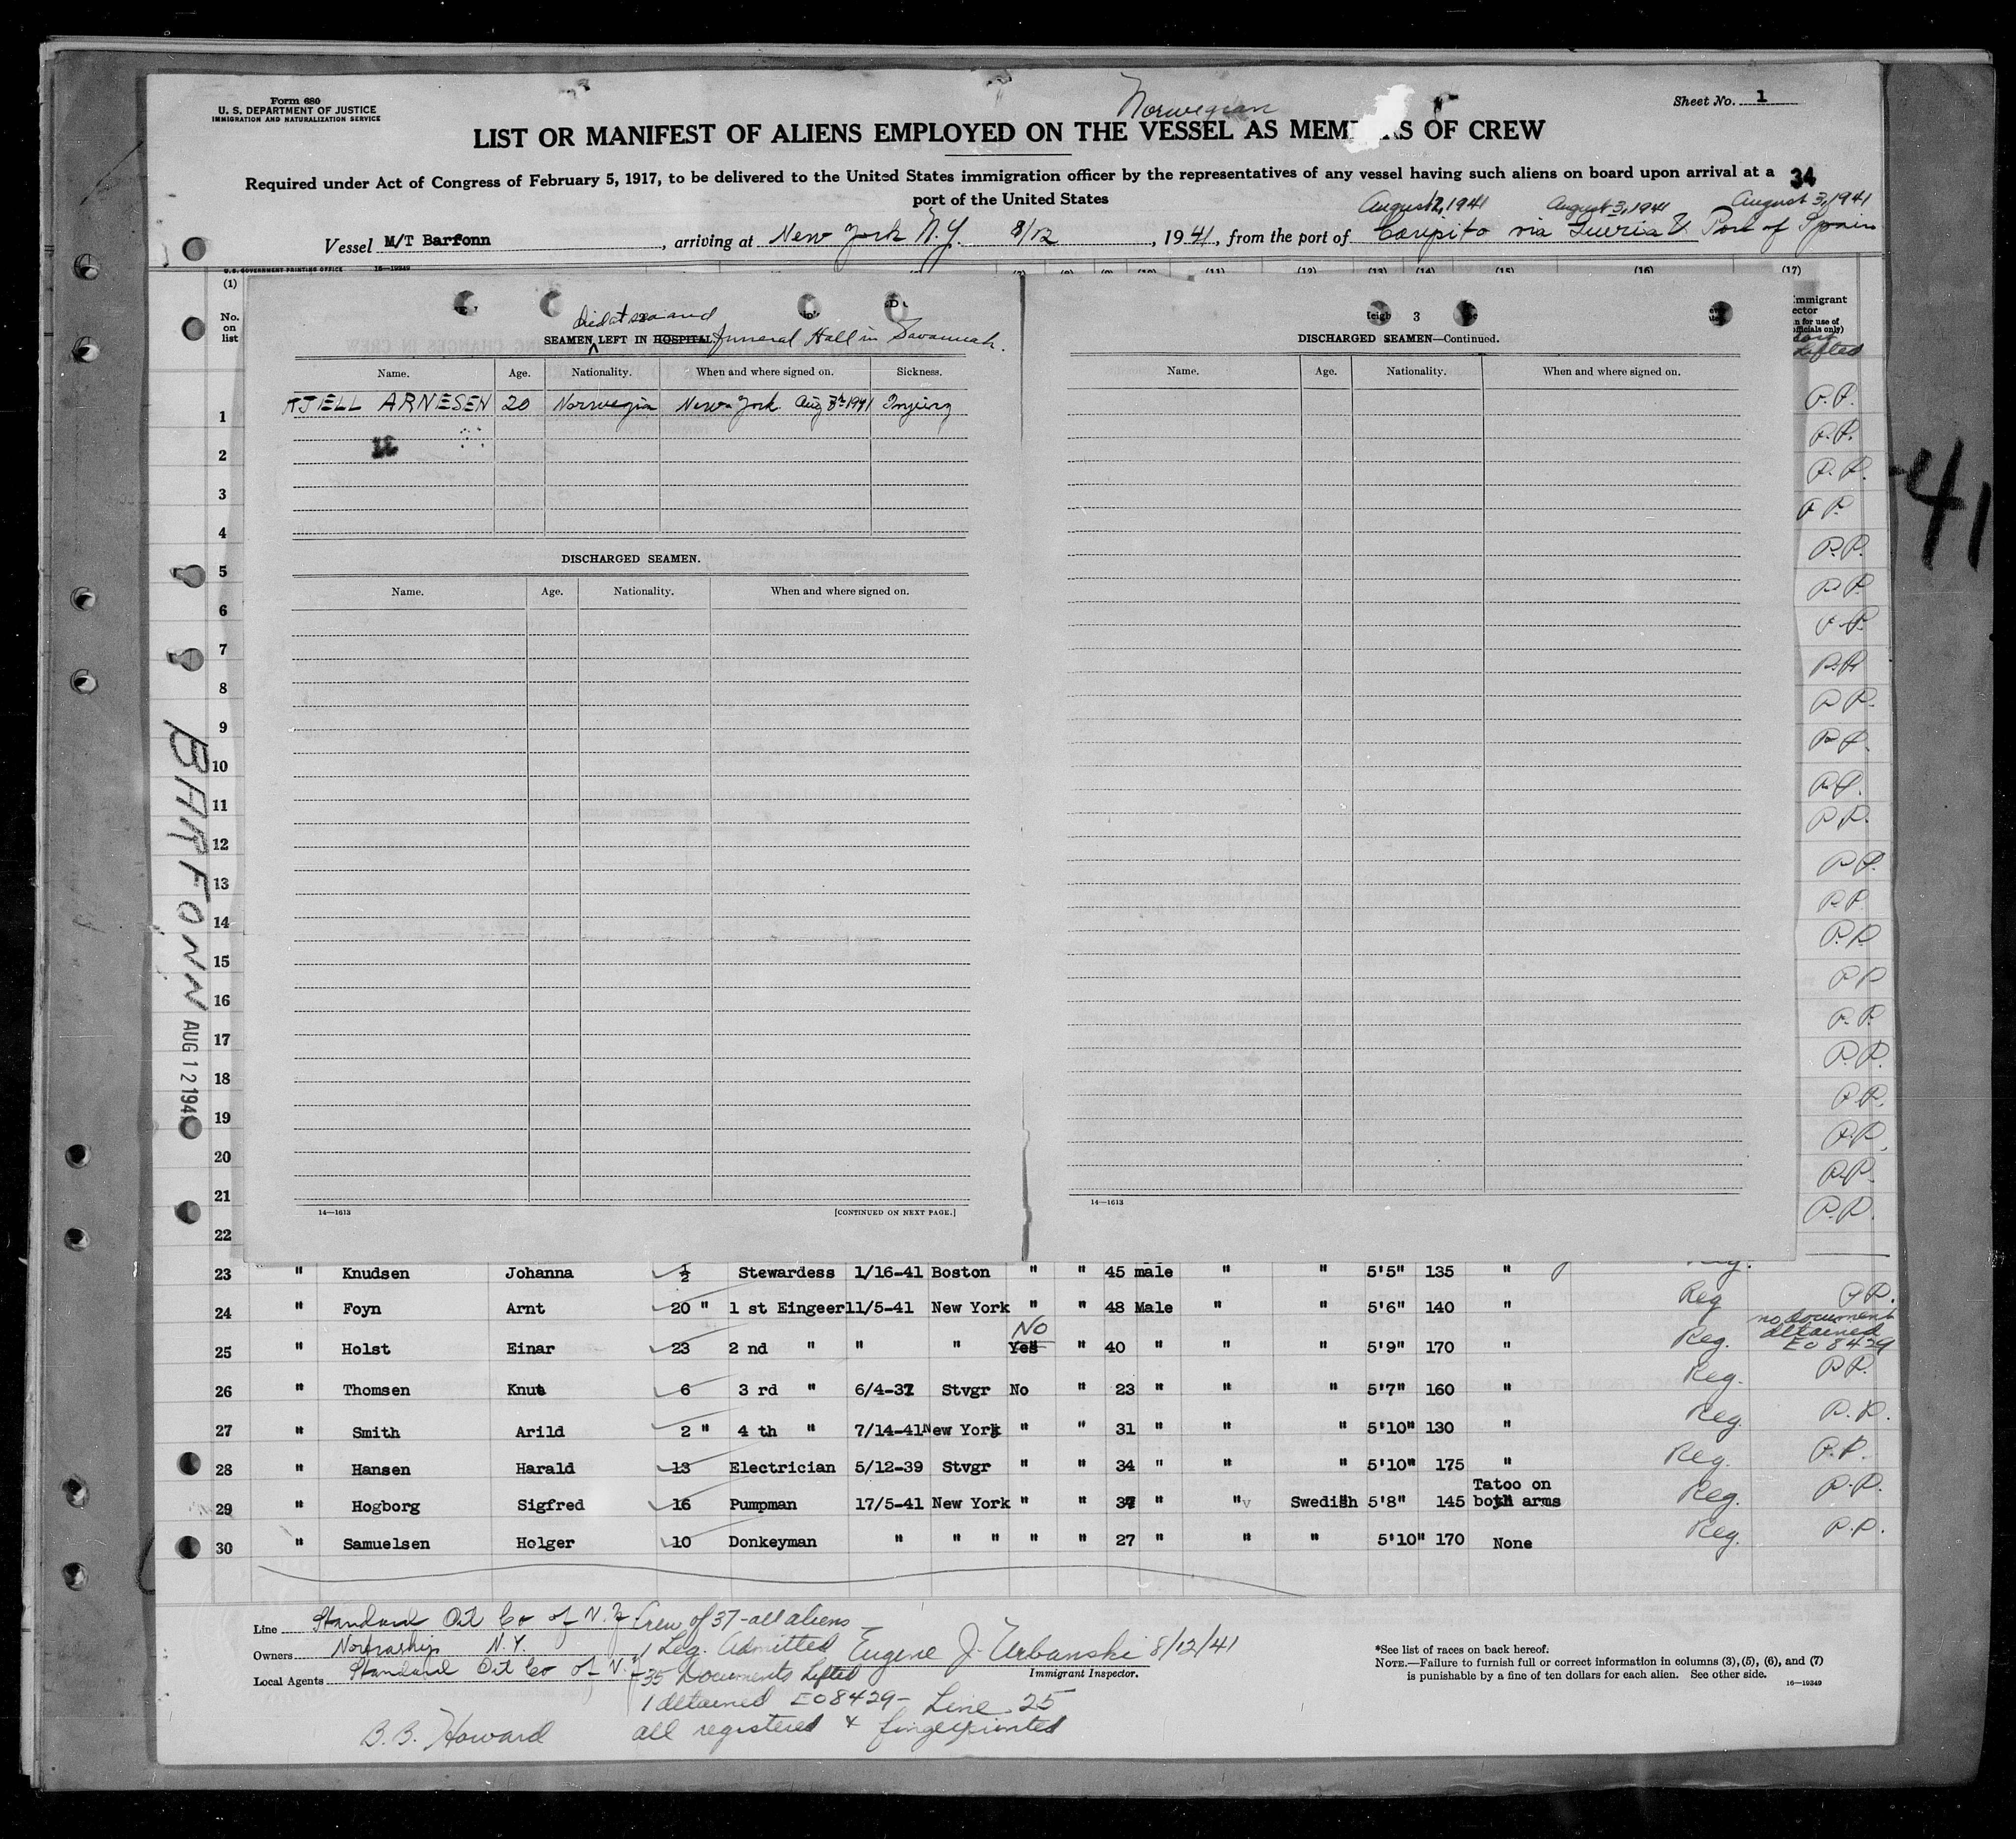 Form 680
U. S. DEPARTMENT OF JUSTICE
IMMIGRATION AND NATURALIZATION SERVICE
Norwegian
Sheet No. 1
LIST OR MANIFEST OF ALIENS EMPLOYED ON THE VESSEL AS MEM RS OF CREW
Required under Act of Congress of February 5, 1917, to be delivered to the United States immigration officer by the representatives of any vessel having such aliens on board upon arrival at a
port of the United States
34
August 3, 1941 August 3, 1941
Vessel M/T Barfonn, arriving at New York N.Y. 8/12, 1941, from the port of Caripito via Guiria & Port of Spain
U.S. GOVERNMENT PRINTING OFFICE 16-19349
(1) (11) (12) (13) (14) (15) (16) (17)
No. on list
Lifted
died at sea and
SEAMEN LEFT IN HOSPITAL funeral Hall in Savannah.
Name. Age. Nationality. When and where signed on. Sickness.
KJELL ARNESEN 20 Norwegian New York Aug 8th 1941
DISCHARGED SEAMEN.
Name. Age. Nationality. When and where signed on.
14—1613 [CONTINUED ON NEXT PAGE.]
3
DISCHARGED SEAMEN—Continued.
Name. Age. Nationality. When and where signed on.
14—1613
1 P.P.
2 P.P.
3 P.P.
4 P.P.
5 P.P.
6 P.P.
7 P.P.
8 P.P.
9 P.P.
10 P.P.
11 P.P.
12 P.P.
13 P.P.
14 P.P.
15 P.P.
16 P.P.
17 P.P.
18 P.P.
19 P.P.
20 P.P.
21 P.P.
22 P.P.
23 " Knudsen Johanna 1/2 Stewardess 1/16-41 Boston " " 45 male " " 5'5" 135 "
24 " Foyn Arnt 20 " 1 st Eingeer 11/5-41 New York " " 48 Male " " 5'6" 140 " Reg P.P.
25 " Holst Einar 23 2 nd " " " Yes No " 40 " " " 5'9" 170 " Reg. no document detained EO 8429
26 " Thomsen Knut 6 3 rd " 6/4-37 Stvgr No " 23 " " " 5'7" 160 " Reg. P.P.
27 " Smith Arild 2 " 4 th " 7/14-41 New York " " 31 " " " 5'10" 130 " Reg. P.P.
28 " Hansen Harald 13 Electrician 5/12-39 Stvgr " " 34 " " " 5'10" 175 " Reg. P.P.
29 " Hogborg Sigfred 16 Pumpman 17/5-41 New York " " 37 " " Swedish 5'8" 145 Tatoo on both arms Reg. P.P.
30 " Samuelsen Holger 10 Donkeyman " " " " " 27 " " " 5'10" 170 None Reg. P.P.
BARFONN
AUG 12 1941
41
Line Standard Oil Co of N.J.
Owners Nortraship N.Y.
Local Agents Standard Oil Co of N.J.
B.B. Howard
Crew of 37 - all aliens
1 Leg. Admitted
35 Documents Lifted
1 detained EO 8429 - Line 25
all registered & fingerprinted
Eugene J. Urbanski 8/12/41
Immigrant Inspector.
*See list of races on back hereof.
NOTE.—Failure to furnish full or correct information in columns (3), (5), (6), and (7)
is punishable by a fine of ten dollars for each alien. See other side.
16—19349